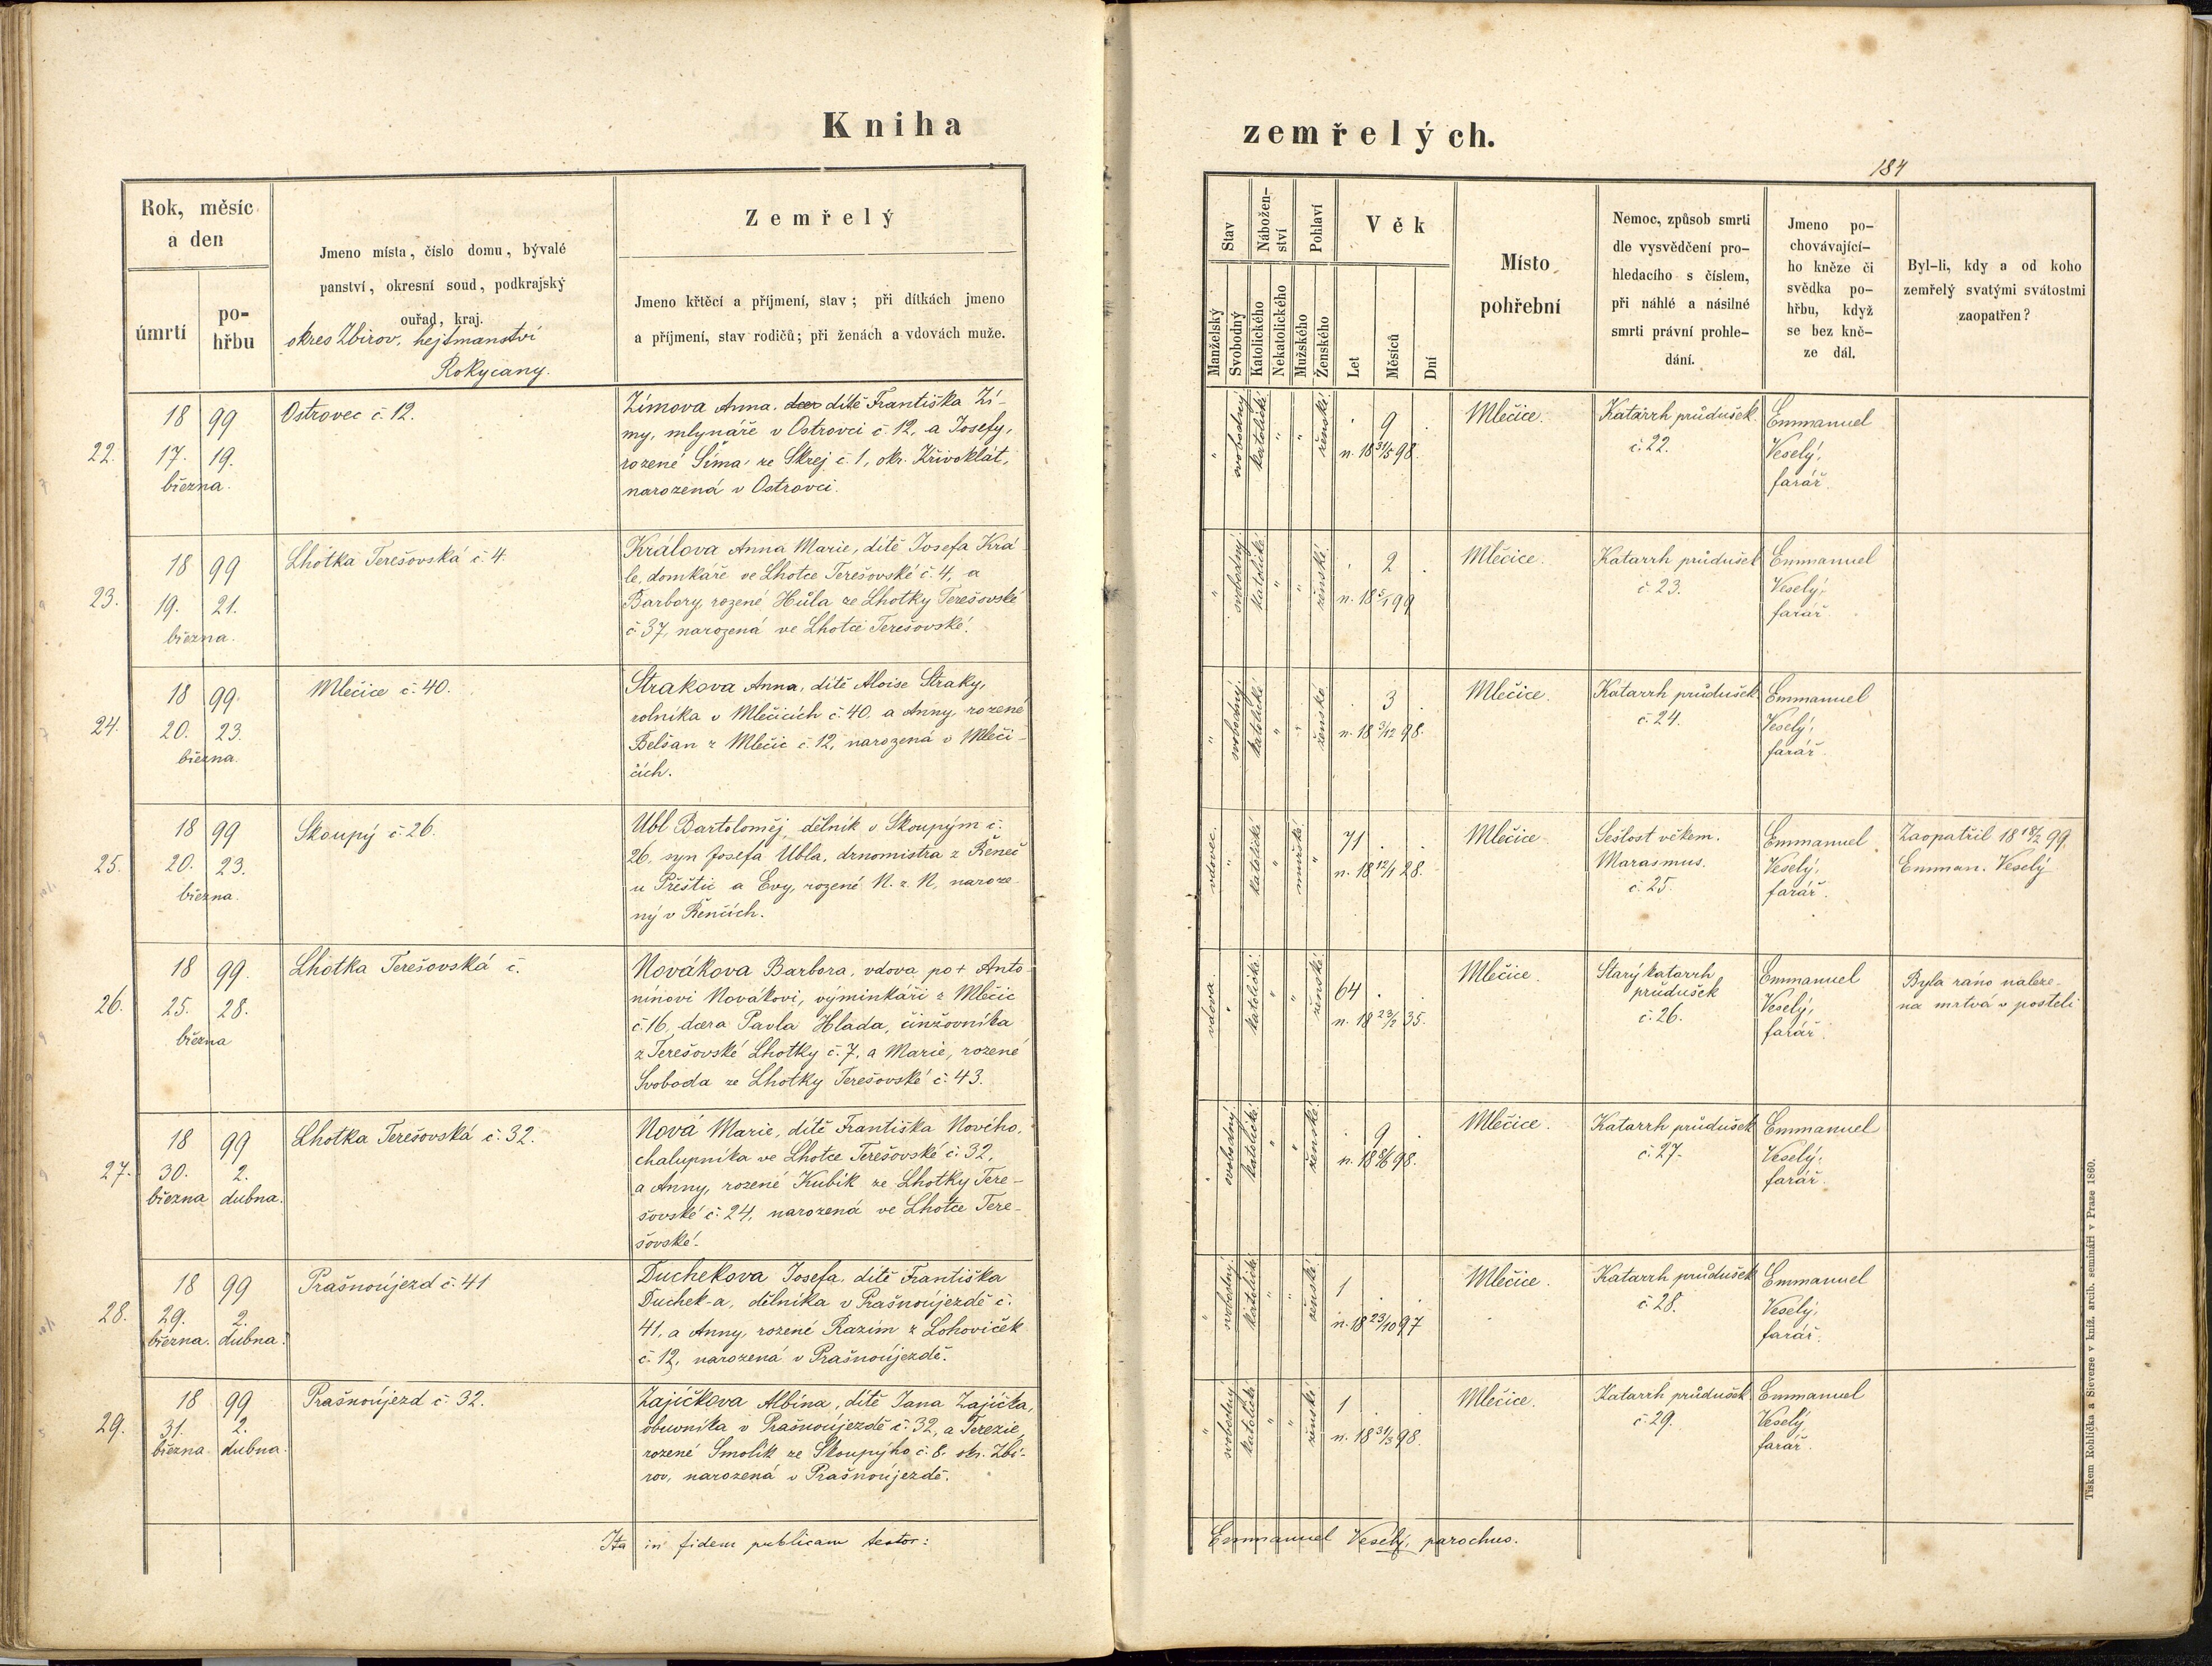 Kniha
Rok, měsíc
a den
úmrtí
po-
hřbu
Jmeno místa, číslo domu, bývalé
panství, okresní soud, podkrajský
ouřad, kraj.
okres Zbirov, hejtmanství
Rokycany.
Zemřelý
Jmeno křtěcí a příjmení, stav; při dítkách jmeno
a příjmení, stav rodičů; při ženách a vdovách muže.
22.
18 99
17. 19.
března.
Ostrovec č. 12.
Zímova Anna, dítě Františka Zí-
my, mlynáře v Ostrovci č. 12, a Josefy,
rozené Šíma ze Skrej č. 1, okr. Křivoklát,
narozená v Ostrovci.
23.
18 99
19. 21.
března.
Lhotka Terešovská č. 4.
Králova Anna Marie, dítě Josefa Krá-
le, domkáře ve Lhotce Terešovské č. 4, a
Barbory, rozené Hůla ze Lhotky Terešovské
č 37, narozená ve Lhotce Terešovské.
24.
18 99.
20. 23.
března.
Mlečice č. 40.
Strakova Anna, dítě Aloise Straky,
rolníka v Mlečicích č. 40. a Anny, rozené
Belšan z Mlečic č. 12, narozená v Mleči-
cích.
25.
18 99
20. 23.
března.
Skoupý č. 26.
Ubl Bartoloměj, dělník v Skoupým č.
26, syn Josefa Ubla, drnomistra z Řeneč
u Přeštic a Evy, rozené N. z N, naroze-
ný v Řenčích.
26.
18 99.
25. 28.
března
Lhotka Terešovská č.
Novákova Barbora, vdova po + Anto-
nínovi Novákovi, výminkáři z Mlečic
č. 16, dcera Pavla Hlada, činžovníka
z Terešovské Lhotky č. 7, a Marie, rozené
Svoboda ze Lhotky Terešovské č. 43.
27.
18 99
30. 2.
března dubna.
Lhotka Terešovská č. 32.
Nová Marie, dítě Františka Nového,
chalupníka ve Lhotce Terešovské č. 32,
a Anny, rozené Kubík ze Lhotky Tere-
šovské č. 24, narozená ve Lhotce Tere-
šovské.
28.
18 99
29. 2.
března. dubna.
Prašnoújezd č. 41
Duchekova Josefa, dítě Františka
Duchek-a, dělníka v Prašnoújezdě č.
41, a Anny, rozené Razím z Lohoviček
č. 12, narozená v Prašnoújezdě.
29.
18 99
31. 2.
března dubna.
Prašnoújezd č. 32.
Zajíčkova Albína, dítě Jana Zajíčka,
obuvníka v Prašnoújezdě č. 32, a Terezie,
rozené Smolík ze Skoupýho č. 8. okr. Zbi-
rov, narozená v Prašnoújezdě.
Ita in fidem publicam testor:
zemřelých.
184
Stav
Nábožen-
ství
Pohlaví
Věk
Manželský
Svobodný
Katolického
Nekatolického
Mužského
Ženského
Let
Měsíců
Dní
Místo
pohřební
Nemoc, způsob smrti
dle vysvědčení pro-
hledacího s číslem,
při náhlé a násilné
smrti právní prohle-
dání.
Jmeno po-
chovávající-
ho kněze či
svědka po-
hřbu, když
se bez kně-
ze dál.
Byl-li, kdy a od koho
zemřelý svatými svátostmi
zaopatřen?
" svobodný katolické " " ženské
9
n. 18 31/5 98.
Mlečice.
Katarrh průdušek
č. 22.
Emmanuel
Veselý,
farář.
" svobodný katolické " " ženské
2
n. 18 5/1 99
Mlečice.
Katarrh průdušek
č. 23.
Emmanuel
Veselý,
farář.
" svobodný katolické " " ženské
3
n. 18 3/12 98.
Mlečice.
Katarrh průdušek
č. 24.
Emmanuel
Veselý,
farář.
vdovec. " katolické " mužské "
71
n. 18 12/1 28.
Mlečice
Sešlost věkem.
Marasmus.
č. 25.
Emmanuel
Veselý,
farář.
Zaopatřil 18 18/2 99.
Emman. Veselý
vdova. " katolické " " ženské
64
n. 18 23/2 35.
Mlečice
Starý katarrh
průdušek
č. 26.
Emmanuel
Veselý,
farář.
Byla ráno naleze-
na mrtvá v posteli
" svobodný katolické " " ženské
9
n. 18 98.
Mlečice.
Katarrh průdušek
č. 27.
Emmanuel
Veselý,
farář.
" svobodný katolické " " ženské
1
n. 18 23/10 97
Mlečice.
Katarrh průdušek
č. 28.
Emmanuel
Veselý,
farář.
" svobodný katolické " " ženské
1
n. 18 31/3 98.
Mlečice.
Katarrh průdušek
č. 29.
Emmanuel
Veselý
farář.
Emmanuel Veselý, parochus.
Tiskem Rohlíčka a Sieverse v kníž. arcib. semináři v Praze 1860.